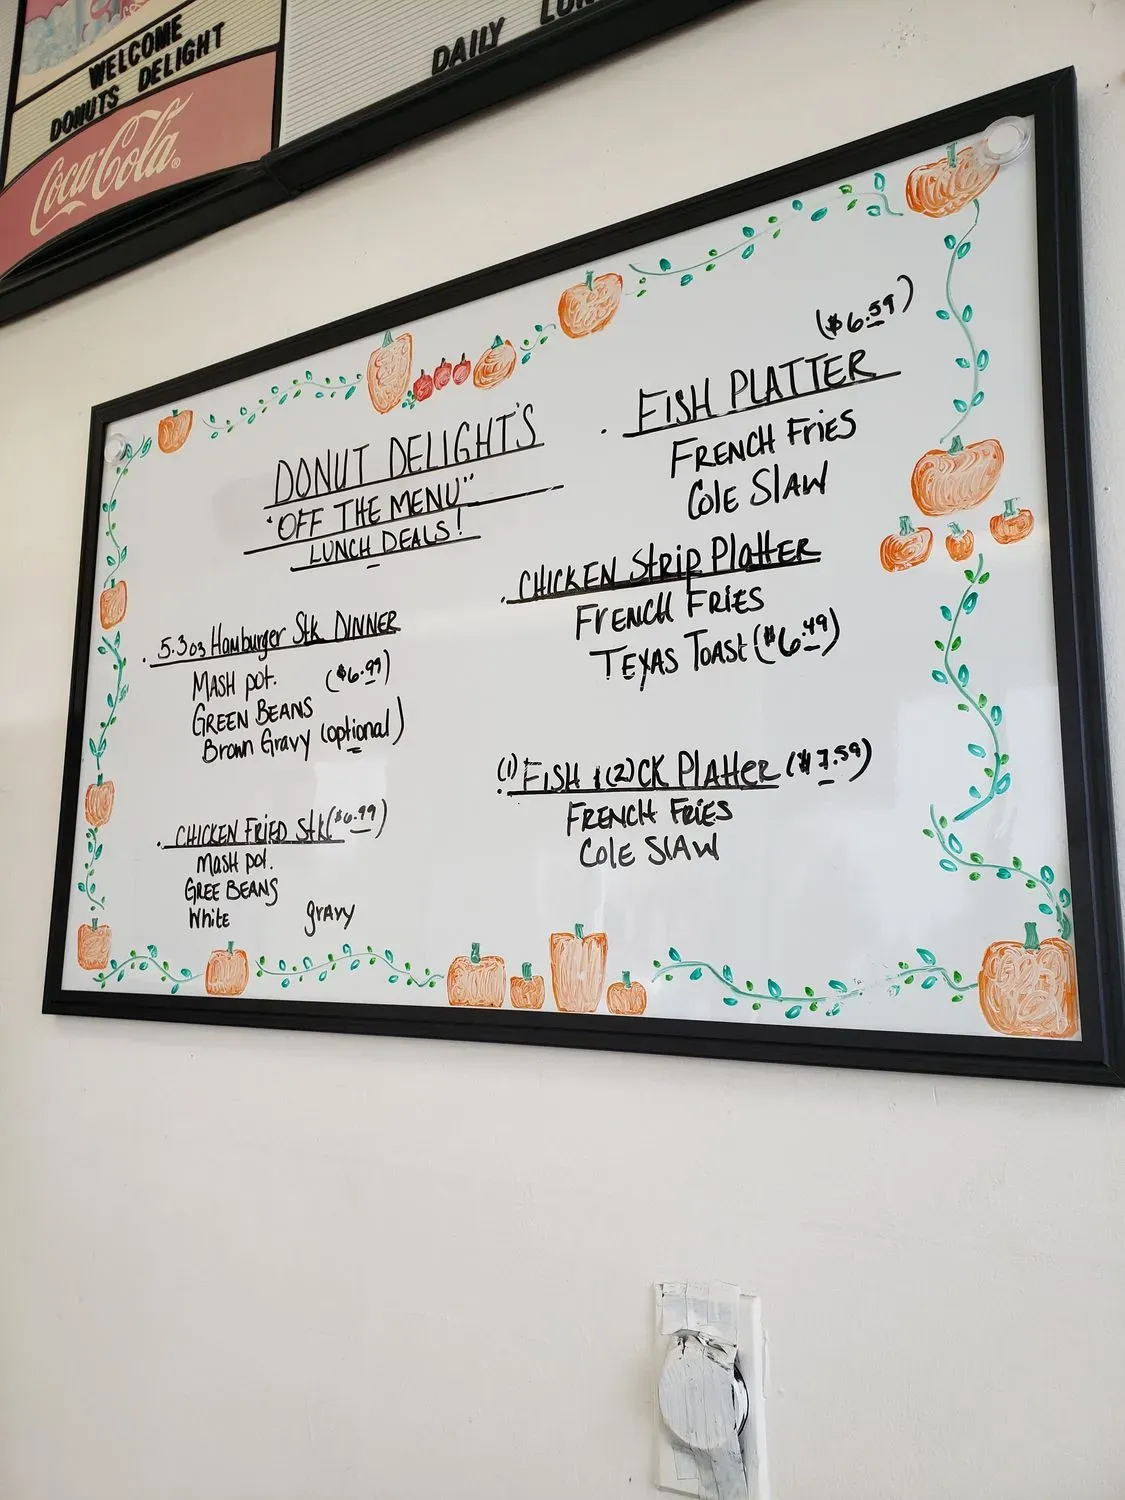 WELCOME
DONUTS DELIGHT
Coca-Cola®
DAILY
DONUT DELIGHT'S
"OFF THE MENU"
LUNCH DEALS!
. 5.3oz Hamburger Stk DINNER
MASH pot. ($6.99)
GREEN BEANS
Brown Gravy (optional)
. CHICKEN FRIED Stk ($6.99)
MASH pot.
GREE BEANS
White gravy
($6.59)
. FISH PLATTER
FRENCH FRIES
COLE SLAW
. CHICKEN STRIP PLATTER
FRENCH FRIES
TEXAS TOAST ($6.49)
. (1) FISH & (2) CK PLATTER ($7.59)
FRENCH FRIES
COLE SLAW